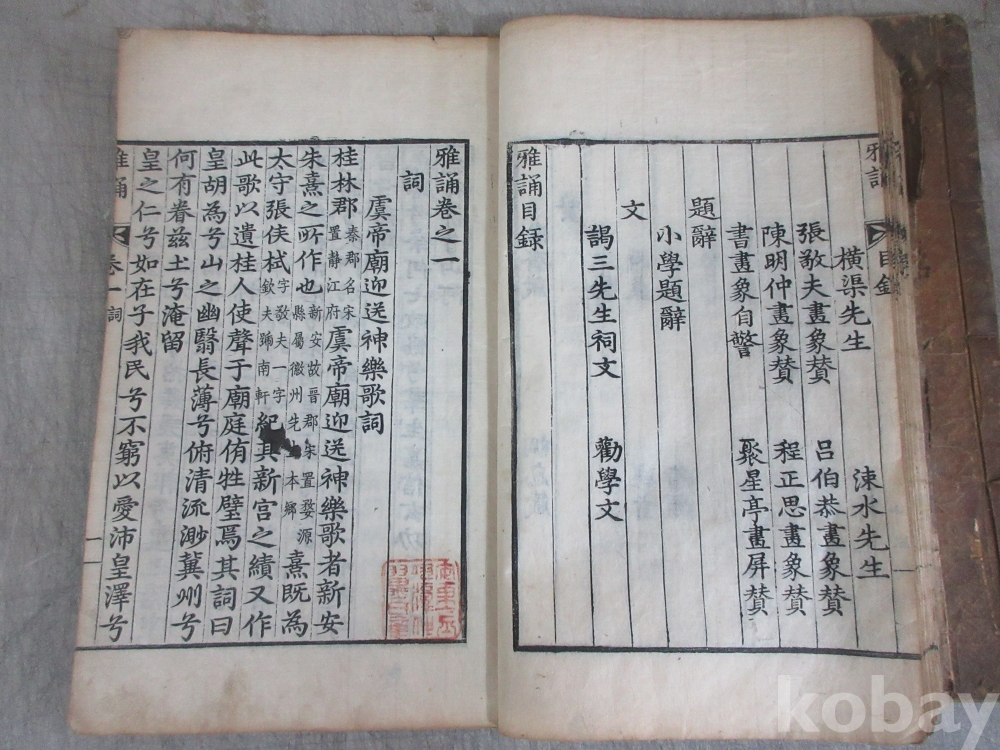 雅誦 目錄
横渠先生 涑水先生
張敬夫畫象贊 吕伯恭畫象贊
陳明仲畫象贊 程正思畫象贊
書畫象自警 聚星亭畫屏贊
題辭
小學題辭
文
謁三先生祠文 勸學文
雅誦目録
雅誦卷之一
詞
虞帝廟迎送神樂歌詞
桂林郡秦郡名宋置静江府虞帝廟迎送神樂歌者新安
朱熹之所作也新安故晉郡宋置婺源縣屬徽州先生本鄉熹既為
太守張侯栻字敬夫一字欽夫號南軒紀其新宫之績又作
此歌以遺桂人使聲于廟庭侑牲璧焉其詞曰
皇胡為兮山之幽翳長薄兮俯清流渺冀州兮
何有眷兹土兮淹留
皇之仁兮如在子我民兮不窮以愛沛皇澤兮
雅誦 卷一 詞 一
kobay